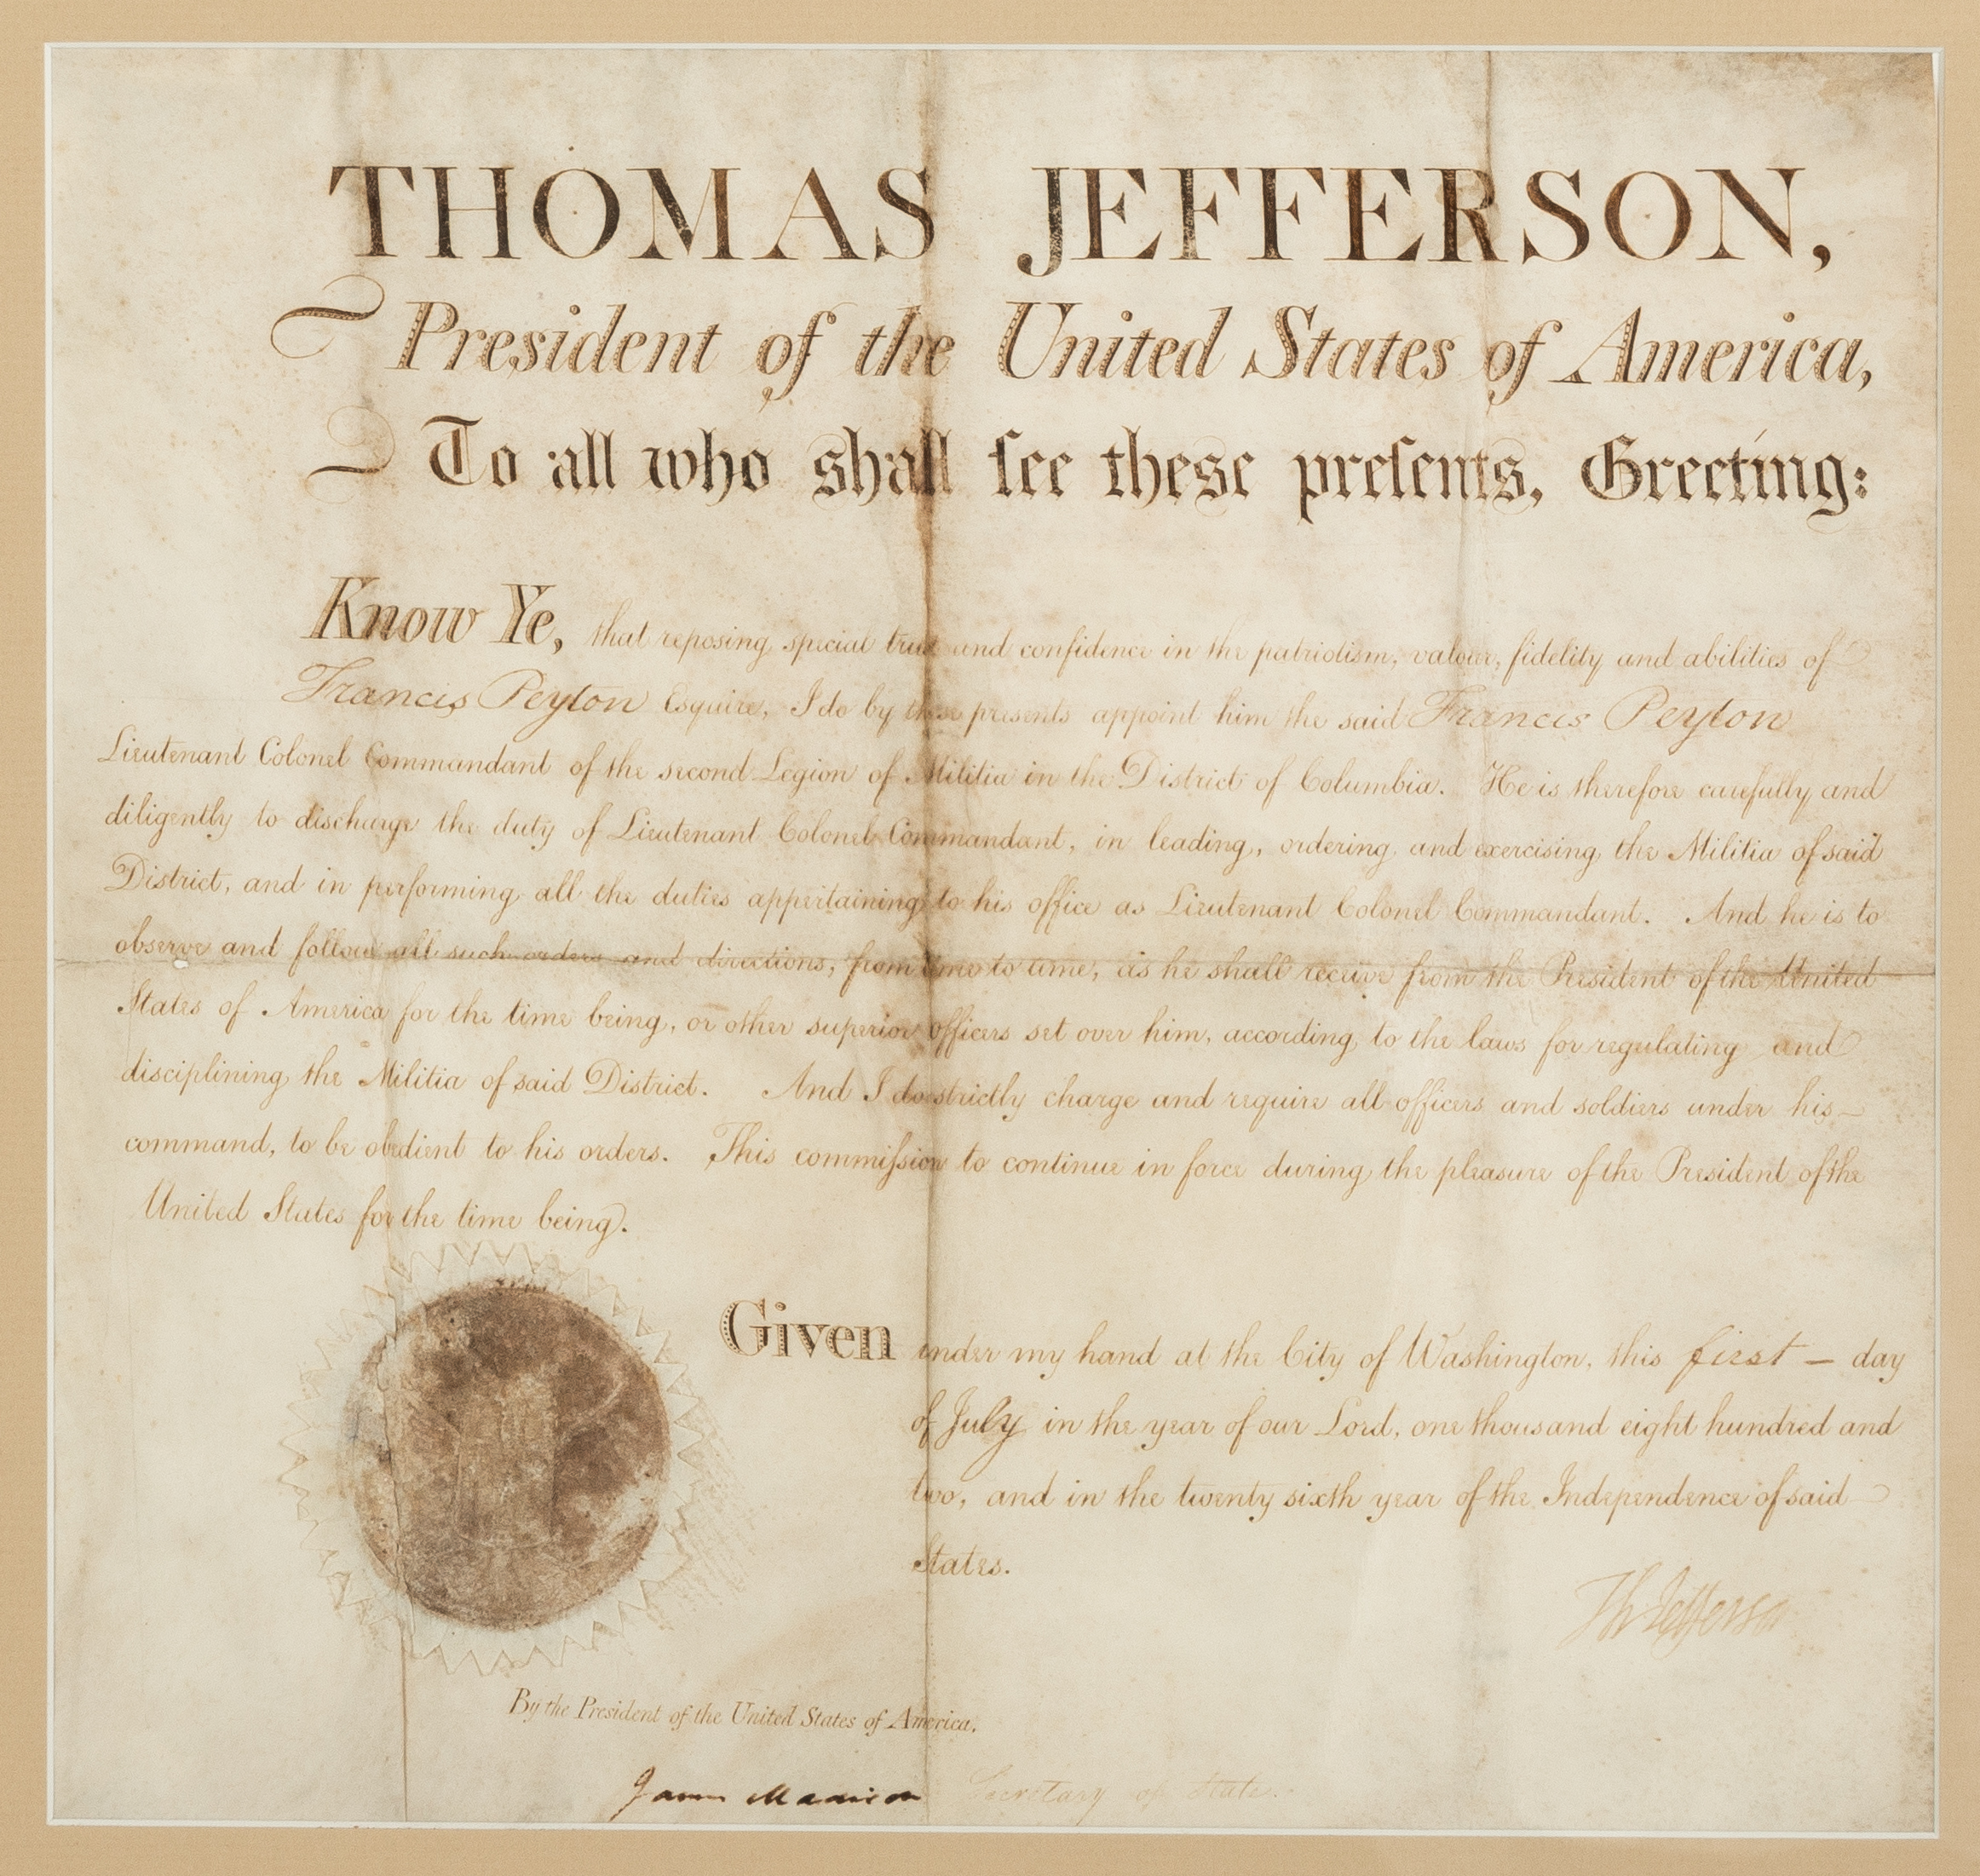 THOMAS JEFFERSON,
President of the United States of America,
To all who shall ſee these preſents, Greeting:
Know Ye, that reposing special trust and confidence in the patriotism, valour, fidelity and abilities of
Francis Peyton Esquire, I do by these presents appoint him the said Francis Peyton
Lieutenant Colonel Commandant of the second Legion of Militia in the District of Columbia. He is therefore carefully and
diligently to discharge the duty of Lieutenant Colonel Commandant, in leading, ordering and exercising the Militia of said
District, and in performing all the duties appertaining to his office as Lieutenant Colonel Commandant. And he is to
observe and follow all such orders and directions, from time to time, as he shall receive from the President of the United
States of America for the time being, or other superior officers set over him, according to the laws for regulating and
disciplining the Militia of said District. And I do strictly charge and require all officers and soldiers under his
command, to be obedient to his orders. This commiſsion to continue in force during the pleasure of the President of the
United States for the time being.
Given under my hand at the City of Washington, this first — day
of July in the year of our Lord, one thousand eight hundred and
two, and in the twenty sixth year of the Independence of said
States.
Th Jefferson
By the President of the United States of America,
James Madison Secretary of State.